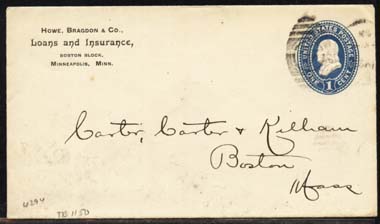 HOWE, BRAGDON & CO.,
Loans and Insurance,
BOSTON BLOCK,
MINNEAPOLIS, MINN.
UNITED STATES POSTAGE
ONE 1 CENT
Carter, Carter & Kilham
Boston
Mass
4294